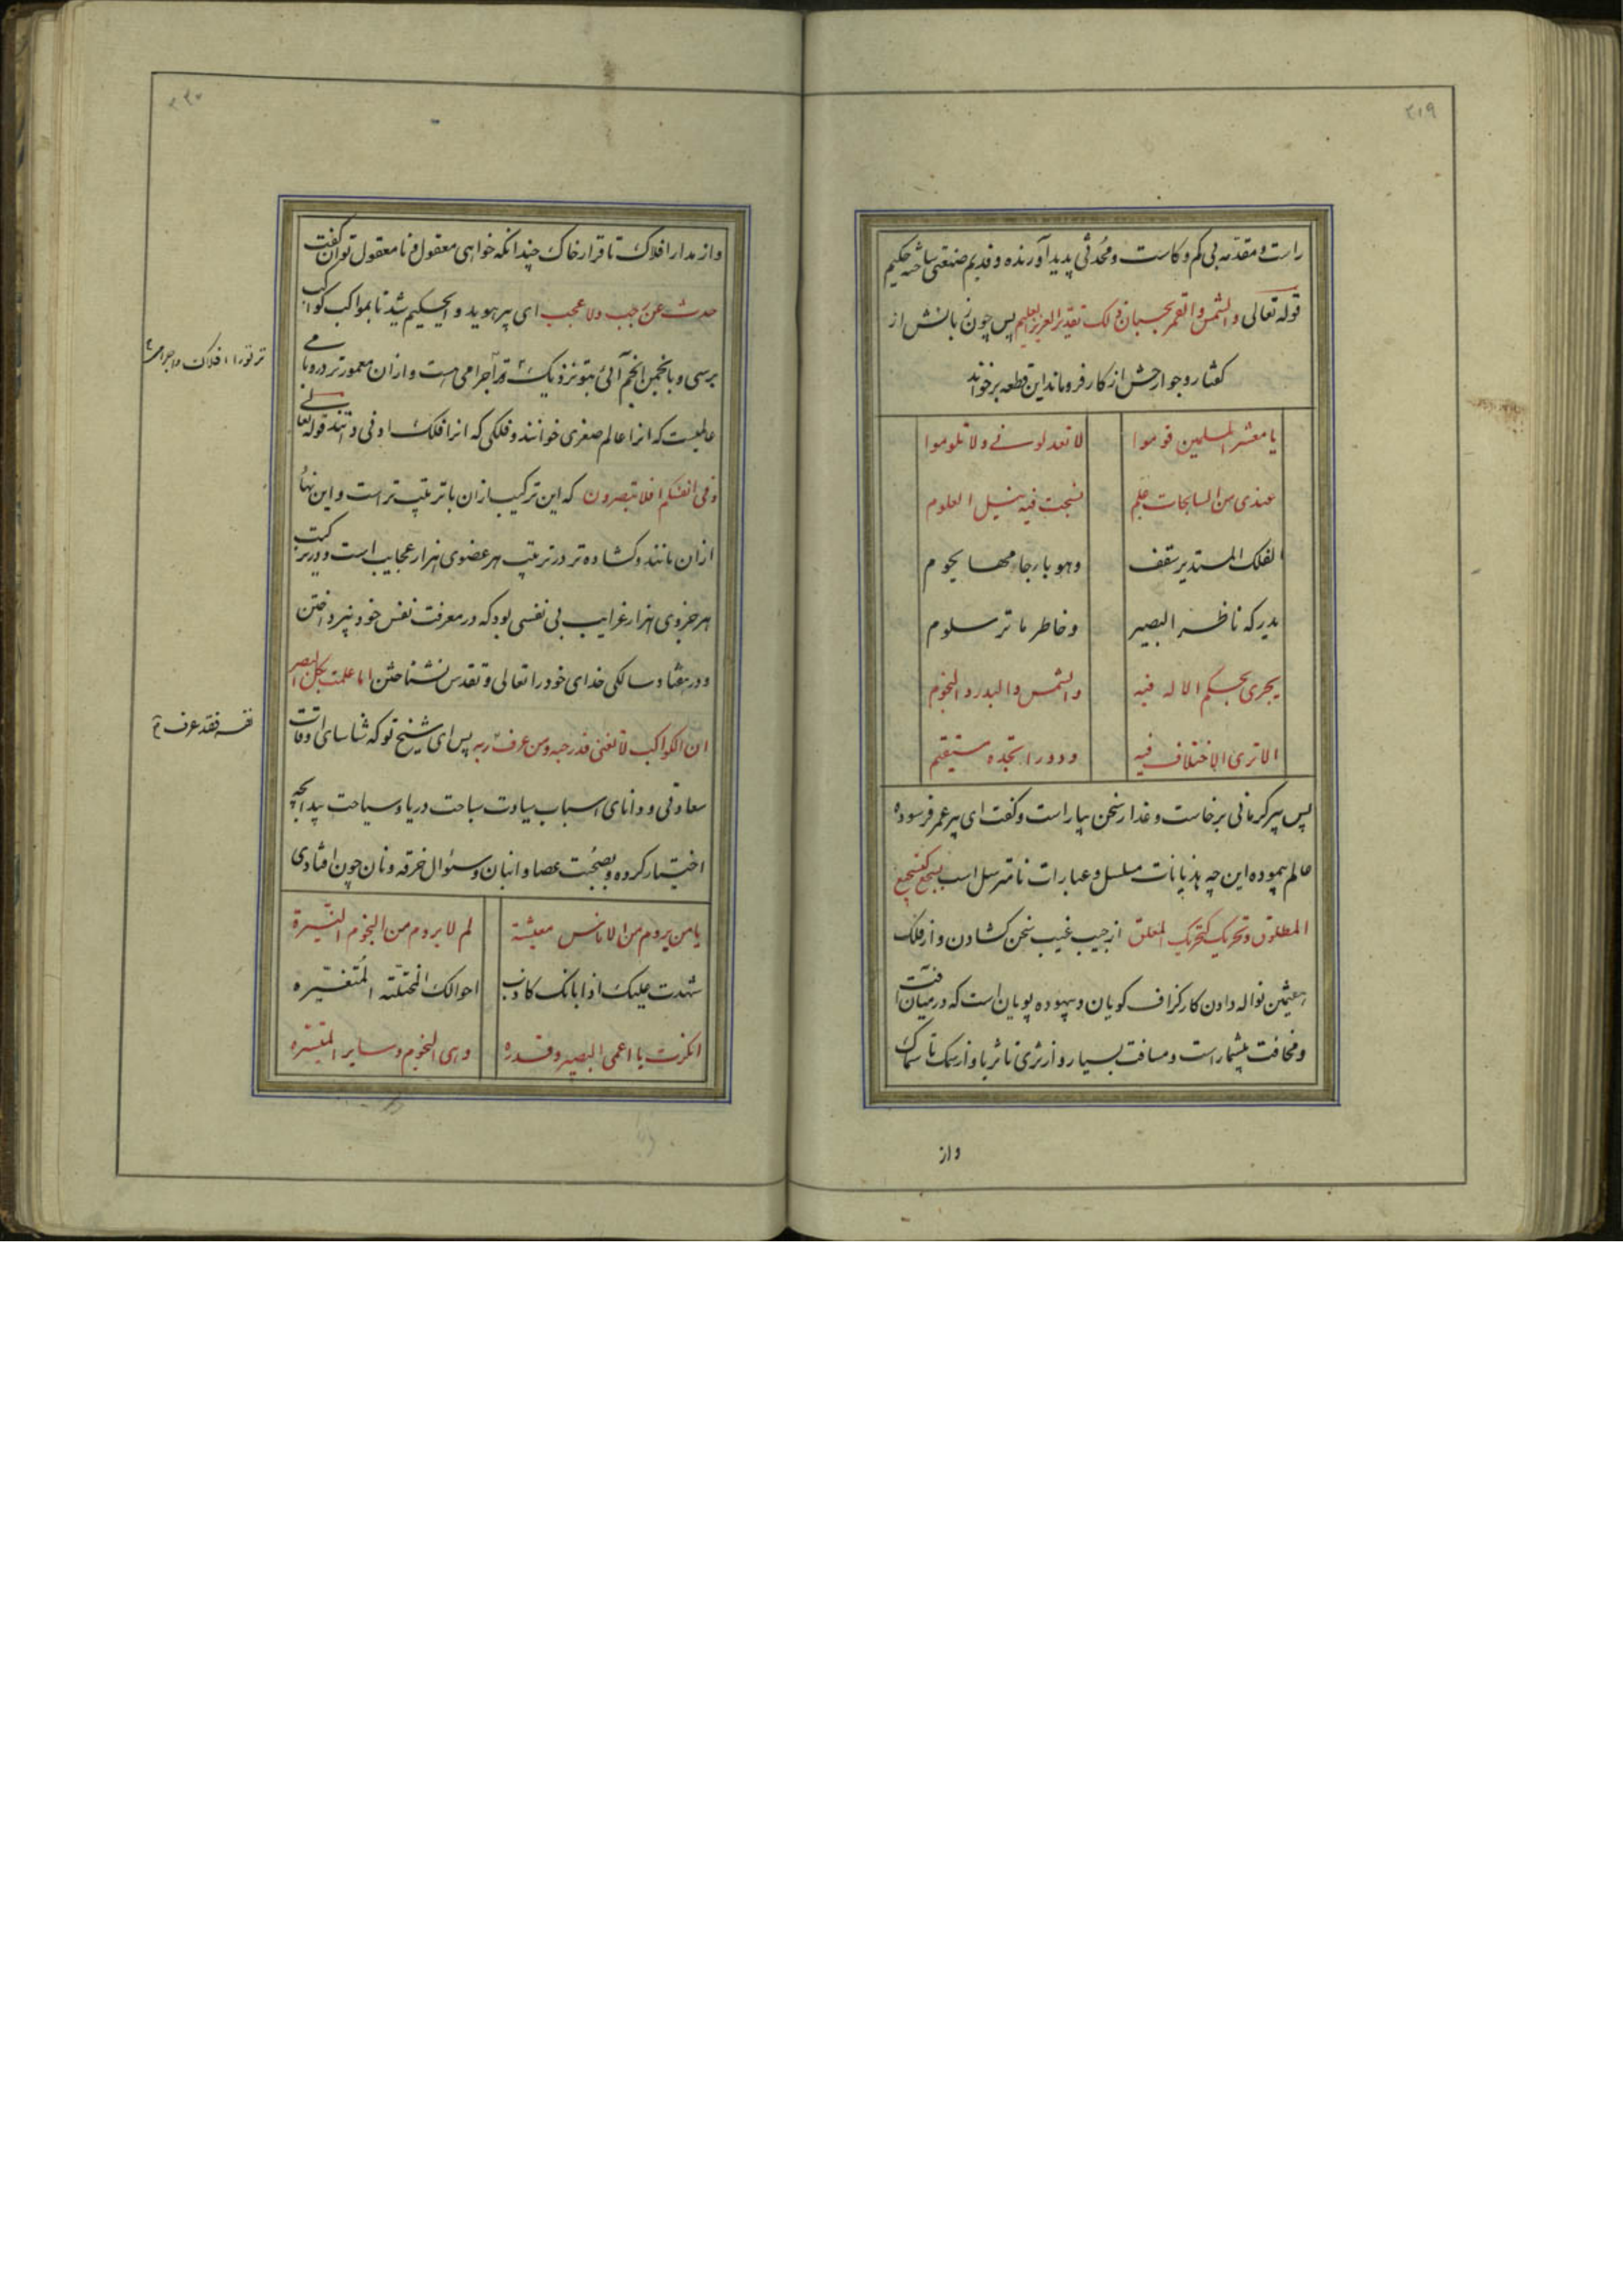 ۲۱۹
راست و مقدمه بی کم و کاست و محدثی پدید آورنده و قدیم صنعتی ساخته حکیم
قوله تعالی والشمس والقمر بحسبان ذلک تقدیر العزیز العلیم پس چون زبانش از
گفتار و جوارحش از کار فروماند این قطعه برخواند
یا معشر المسلمین قوموا لا تعدلونی ولا تلوموا
عندی من السابحات علم نتجت فیه نیل العلوم
الفلک المستدیر سقف وهو بارجامها یحوم
یدرکه ناظر البصیر وخاطر ما تر سلوم
یجری بحکم الاله فیه والشمس والبدر والنجوم
الا تری الاختلاف فیه ودورا تجده مستقیم
پس پیر کرمانی برخاست و عذار سخن بیاراست و گفت ای پیر عمر فرسوده
عالم پیموده این چه هذیانات مسلسل و عبارات نامترسل است
المطلوق و تحریک کتحریک المعلق از جیب غیب سخن گشادن و از فلک
هشتمین نواله دادن کار گزاف گویان و بیهوده پویان است که در میان آفت
و مخافت بیشمار است و مسافت بسیار و از ثری تا ثریا و از سمک تا سماک
و از
۲۲۰
و از مدار افلاک تا قرار خاک چندانکه خواهی معقول و نامعقول توان گفت
حدث عن رجب ولا عجب ای پیر هوید و ای حکیم شید تا بمواکب کواکب
برسی و بانجمن انجم آئی بتو نزدیک تر آجرامی هست و از آن معمورتر در و بامی
تر تورا افلاک و اجرامی
عالمیست که آنرا عالم صغری خوانند و فلکی که آنرا فلک ادنی دانند قوله تعالی
وفی انفسکم افلا تبصرون که این ترکیب از آن باترتیب تر است و این نهاد
از آن مانند و گشاده تر در ترتیب هر عضوی هزار عجایب است و در ترکیب
هر جزوی هزار غرایب بی نفسی بود که در معرفت نفس خود نپرداختن
و در هفتاد سالگی خدای خود را تعالی و تقدس نشناختن اما علمت بکل البصر
ان الکواکب لا تغنی قدر حبه ومن عرف ربه پس ای شیخ تو که شناسای اوقات
نفسه فقد عرف
سعادتی و دانای اسباب سیادت سیاحت دریا و سیاحت بیدا بچه
اختیار کرده و بصحبت عصا و انبان و سئوال خرقه و نان چون افتادی
یا من یروم من الاناس معیشة لم لا یروم من النجوم النیرة
شهدت علیک اذا بانک کاذب احوالک المختلة المتغیره
انکرت یا اعمی البصیر وقدره وهی النجوم وسایر المتیسره